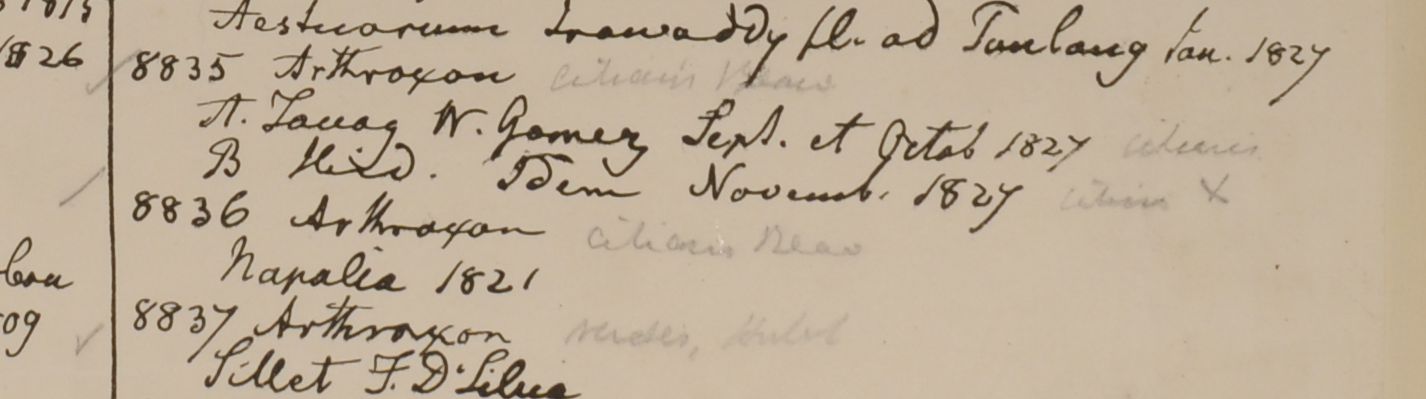 1826
Aestuarium Irawaddy fl. ad Tonlang Jan. 1827
8835 Arthroxon ciliaris Beauv
A. Tavoy W. Gomez Sept. et Octob 1827 ciliaris
B Ibid. Idem Novemb. 1827 X
8836 Arthroxon ciliaris Beauv
Napalia 1821
8837 Arthroxon
09
Sillet F. D'Silva